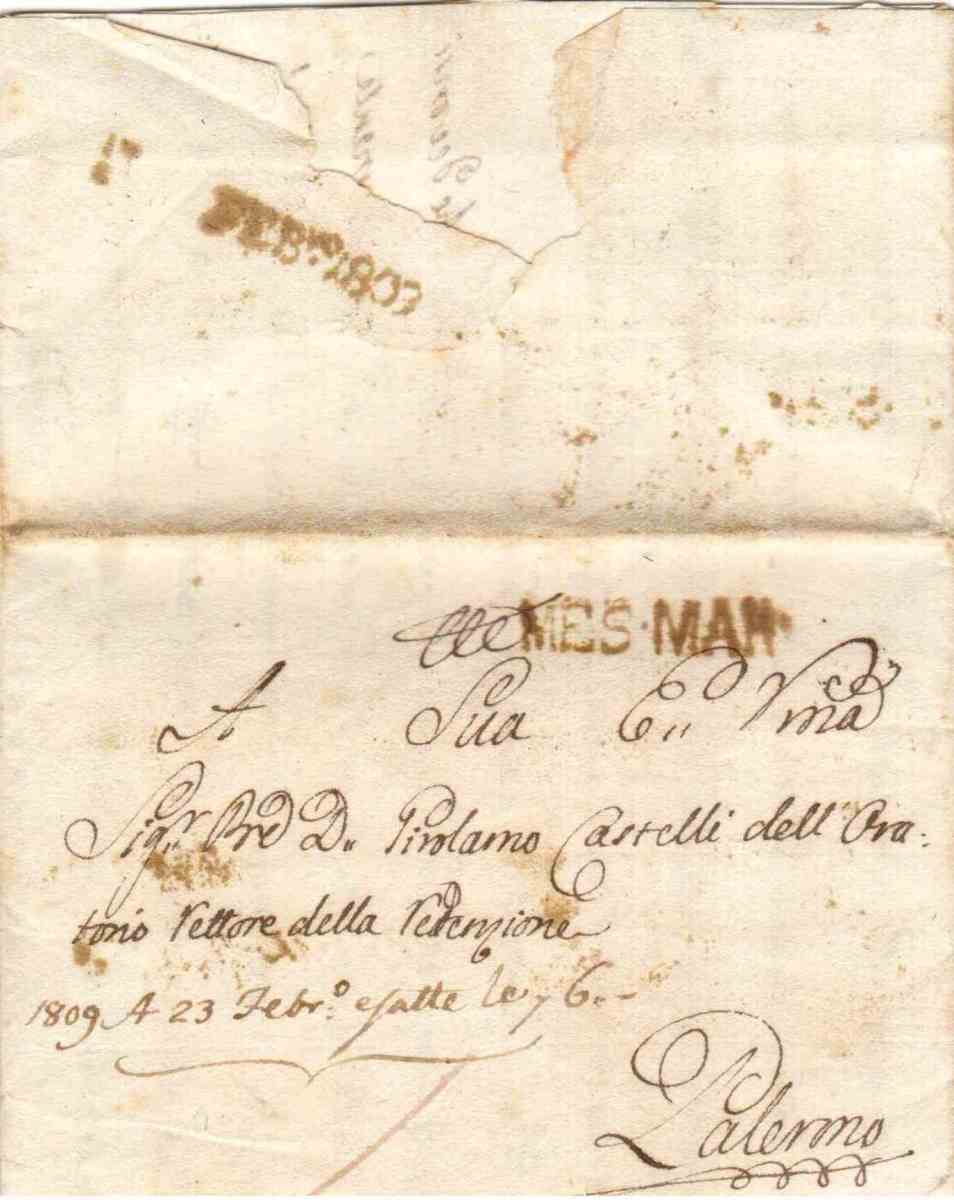 FEBro. 1809
MES·MAR
A Sua E. Vma
Sigr. Pre D. Girolamo Castelli dell'Ora:
torio Rettore della Redenzione
1809 A 23 Febr:o esatte le 6.
Palermo